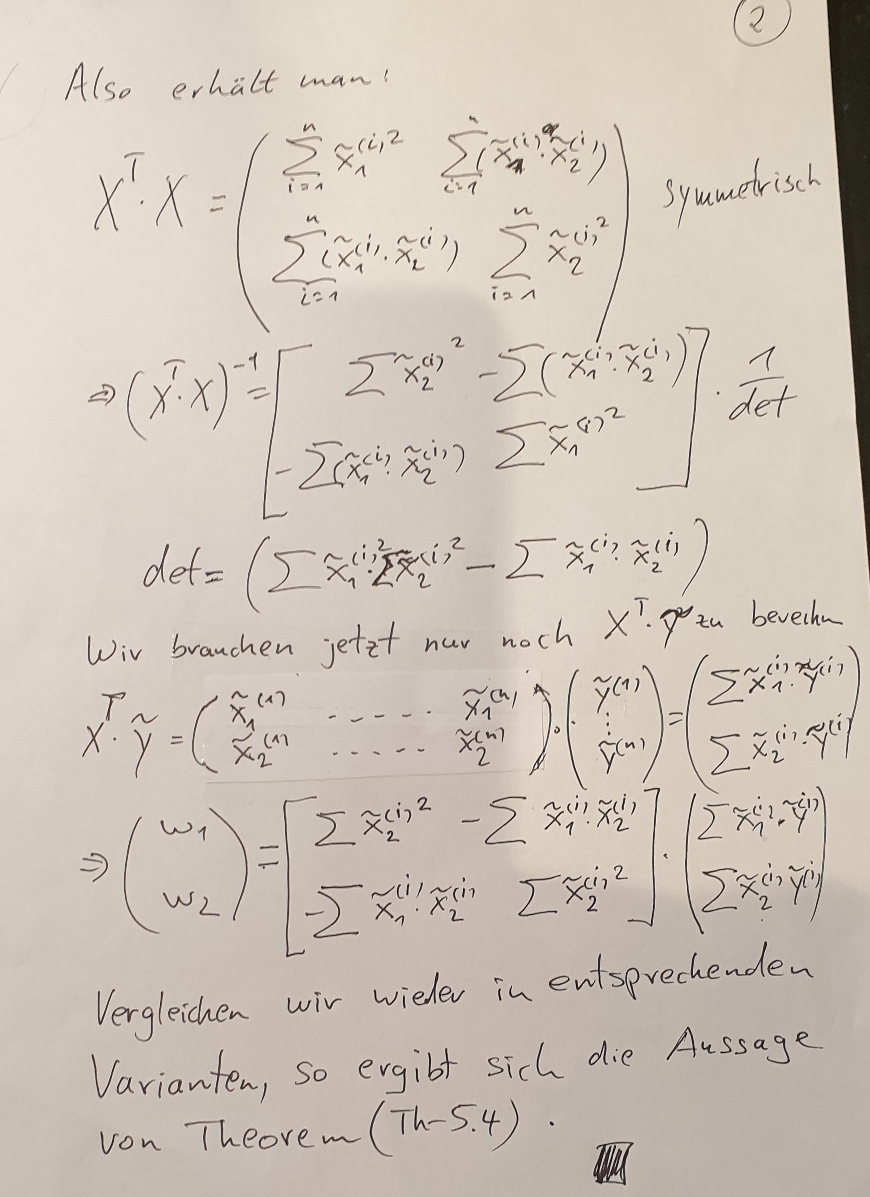 ②
Also erhält man:
X^T · X = ( ∑_{i=1}^n x̃_1^{(i)2}   ∑_{i=1}^n (x̃_1^{(i)} · x̃_2^{(i)})
∑_{i=1}^n (x̃_1^{(i)} · x̃_2^{(i)})   ∑_{i=1}^n x̃_2^{(i)2} ) symmetrisch
⇒ (X^T · X)^{-1} = [ ∑ x̃_2^{(i)2}   -∑(x̃_1^{(i)} · x̃_2^{(i)})
-∑(x̃_1^{(i)} · x̃_2^{(i)})   ∑ x̃_1^{(i)2} ] · 1/det
det = ( ∑ x̃_1^{(i)2} · ∑ x̃_2^{(i)2} - ∑ x̃_1^{(i)} · x̃_2^{(i)} )
Wir brauchen jetzt nur noch X^T · y zu berechn
X^T · ỹ = ( x̃_1^{(1)} ..... x̃_1^{(n)}
x̃_2^{(1)} ..... x̃_2^{(n)} ) · ( ỹ^{(1)} ⋮ ỹ^{(n)} ) = ( ∑ x̃_1^{(i)} · ỹ^{(i)}
∑ x̃_2^{(i)} · ỹ^{(i)} )
⇒ ( w_1
w_2 ) = [ ∑ x̃_2^{(i)2}   -∑ x̃_1^{(i)} · x̃_2^{(i)}
-∑ x̃_1^{(i)} · x̃_2^{(i)}   ∑ x̃_2^{(i)2} ] · ( ∑ x̃_1^{(i)} · ỹ^{(i)}
∑ x̃_2^{(i)} ỹ^{(i)} )
Vergleichen wir wieder in entsprechenden
Varianten, so ergibt sich die Aussage
von Theorem (Th-5.4).